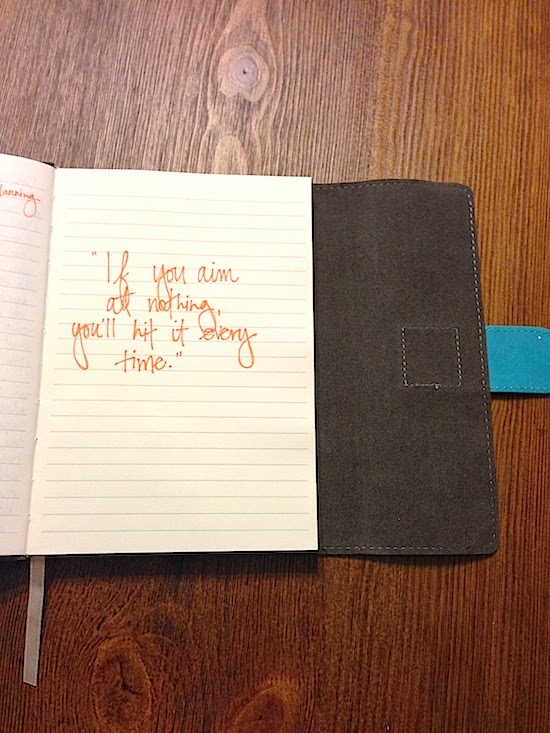 "If you aim
at nothing,
you'll hit it every
time."